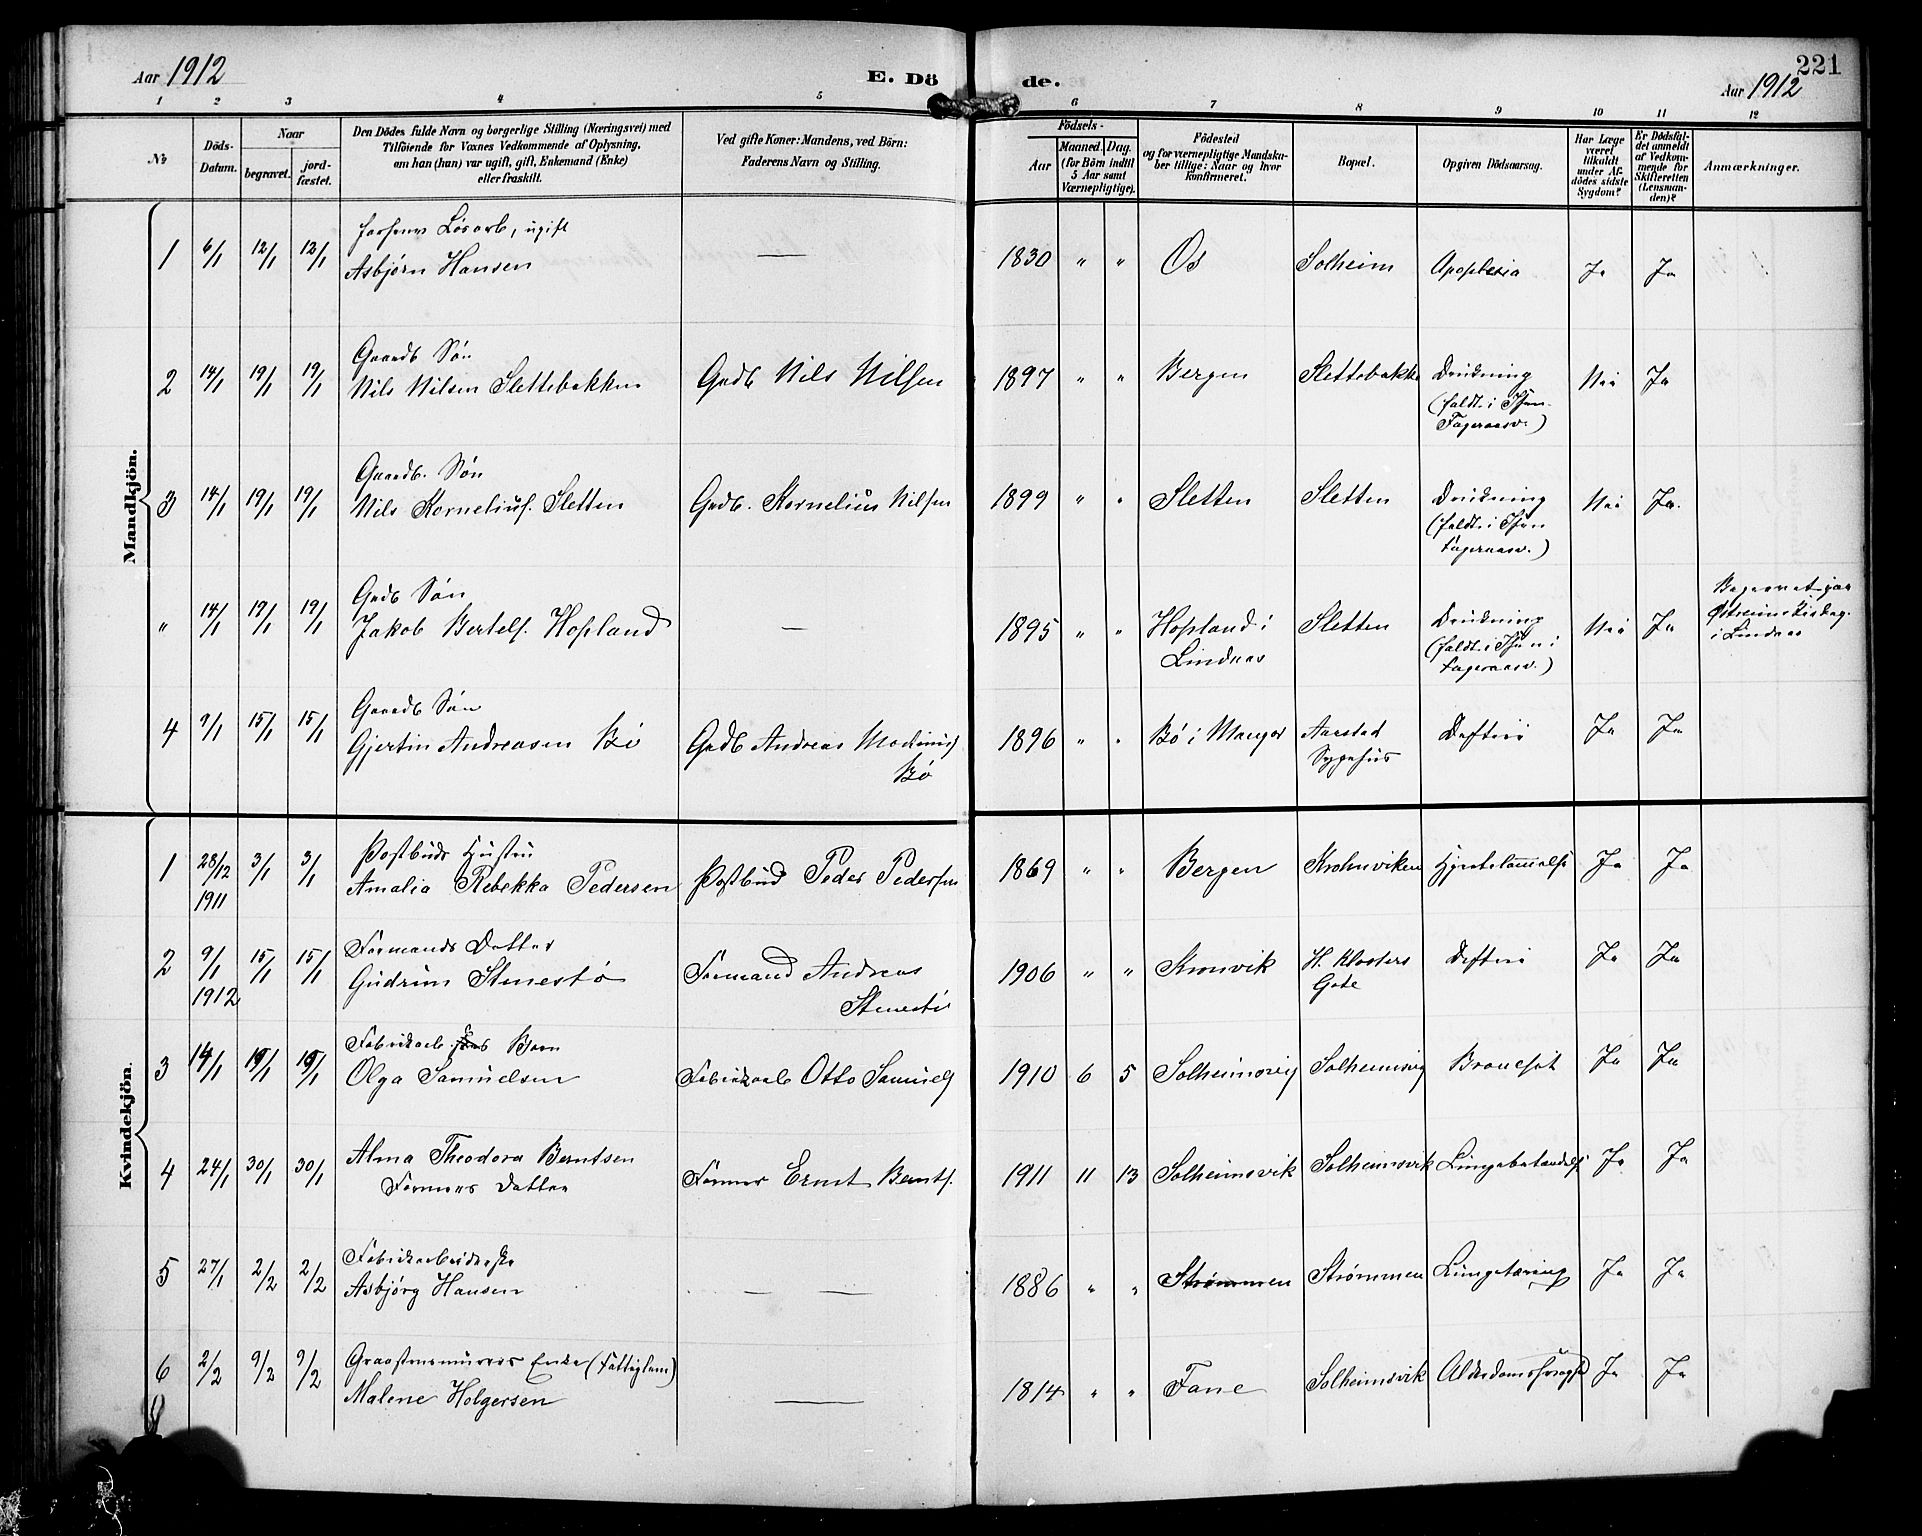 Aar 1912
E. Dö
de.
221
Aar 1912
1 2 3 4 5 6 7 8 9 10 11 12
No
Döds-
Datum.
Naar
begravet.
jord-
fæstet.
Den Dödes fulde Navn og borgerlige Stilling (Næringsvei) med
Tilföiende for Voxnes Vedkommende af Oplysning,
om han (hun) var ugift, gift, Enkemand (Enke)
eller fraskilt.
Ved gifte Koner: Mandens, ved Börn:
Faderens Navn og Stilling.
Födsels-
Aar
Maaned. Dag.
(for Börn indtil
5 Aar samt
Værnepligtige).
Födested
og for værnepligtige Mandska-
ber tillige: Naar og hvor
konfirmeret.
Bopæl.
Opgiven Dödsaarsag.
Har Læge
været
tilkaldt
under Af-
dödes sidste
Sygdom?
Er Dödsfal-
det anmeldt
af Vedkom-
mende for
Skifteretten
(Lensman-
den)?
Anmærkninger.
Mandkjön.
Lösarb, ugift
1 6/1 12/1 12/1 Asbjørn Hansen — 1830 " " Os Solheim Apoplexia Ja Ja
Gaardb Søn
2 14/1 19/1 19/1 Nils Nilsen Slettebakken Gadb Nils Nilsen 1897 " " Bergen Slettebakke Drukning Nei Ja
(faldt i Isen
Fageraasv.)
Gaardb. Søn
3 14/1 19/1 19/1 Nils Korneliusf. Sletten Gadb. Kornelius Nilsen 1899 " " Sletten Sletten Drukning Nei Ja.
(faldt i Isen
Fageraasv.)
Gadb Søn
" 14/1 19/1 19/1 Jakob Bertelf. Hopland — 1895 " " Hopland i Sletten Drukning Nei Ja
Lindaas
(faldt i Isen i
Fageraasv.)
Begravet paa
Østreims Kirkeg.
i Lindaas
Gaardb Søn
4 9/1 15/1 15/1 Gjertin Andreasen Bö Gadb Andreas
Bø
1896 " " Bø i Manger Aarstad
Sygehus
Difteri Ja Ja
Kvindekjön.
Postbuds Hustru
1 28/12 3/1 3/1 Amalia Rebekka Pedersen Postbud Peder Pedersen 1869 " " Bergen Krohnviken Ja Ja
1911
Formands Datter
2 9/1 15/1 15/1 Gudrun Stenestø Formand Andreas
Stenestø
1912
1906 " " Kronvik H. Klosters
Gate
Difteri Ja Ja
Fabrikarb. Barn
3 14/1 19/1 19/1 Olga Samuelsen Fabrikarb Otto Samuels 1910 6 5 Solheimsvig Solheimsvig Ja Ja
4 24/1 30/1 30/1 Alma Theodora Berntsen
Formers Datter
Former Ernst Berntf. 1911 11 13 Solheimsvik Solheimsvik Lungebetændelse Ja Ja
Fabrikarbeiderske
5 27/1 2/2 2/2 Asbjørg Hansen — — 1886 " " Strømmen Strømmen Lungetæring Ja Ja
Graastensmurers Enke (Fattiglem)
6 2/2 9/2 9/2 Malene Holgersen — 1814 " " Fane Solheimsvik Alderdomssvaghed Ja Ja